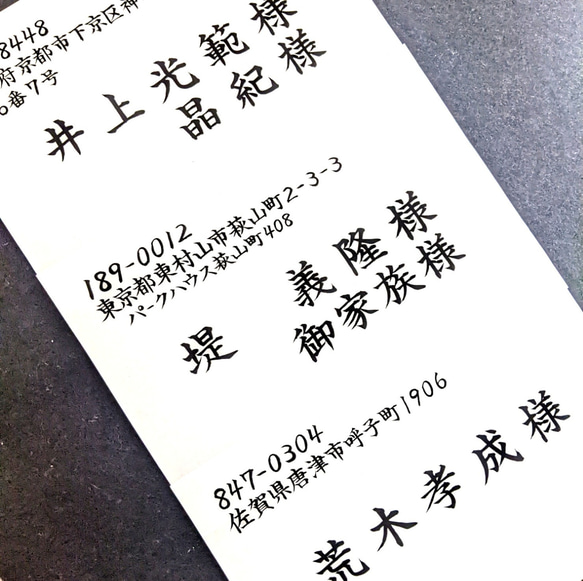 8448
府京都市下京区神
番7号
井上光範様
晶紀様
189-0012
東京都東村山市萩山町2-3-3
パークハウス萩山町408
堤 義隆様
御家族様
847-0304
佐賀県唐津市呼子町1906
荒木孝成様